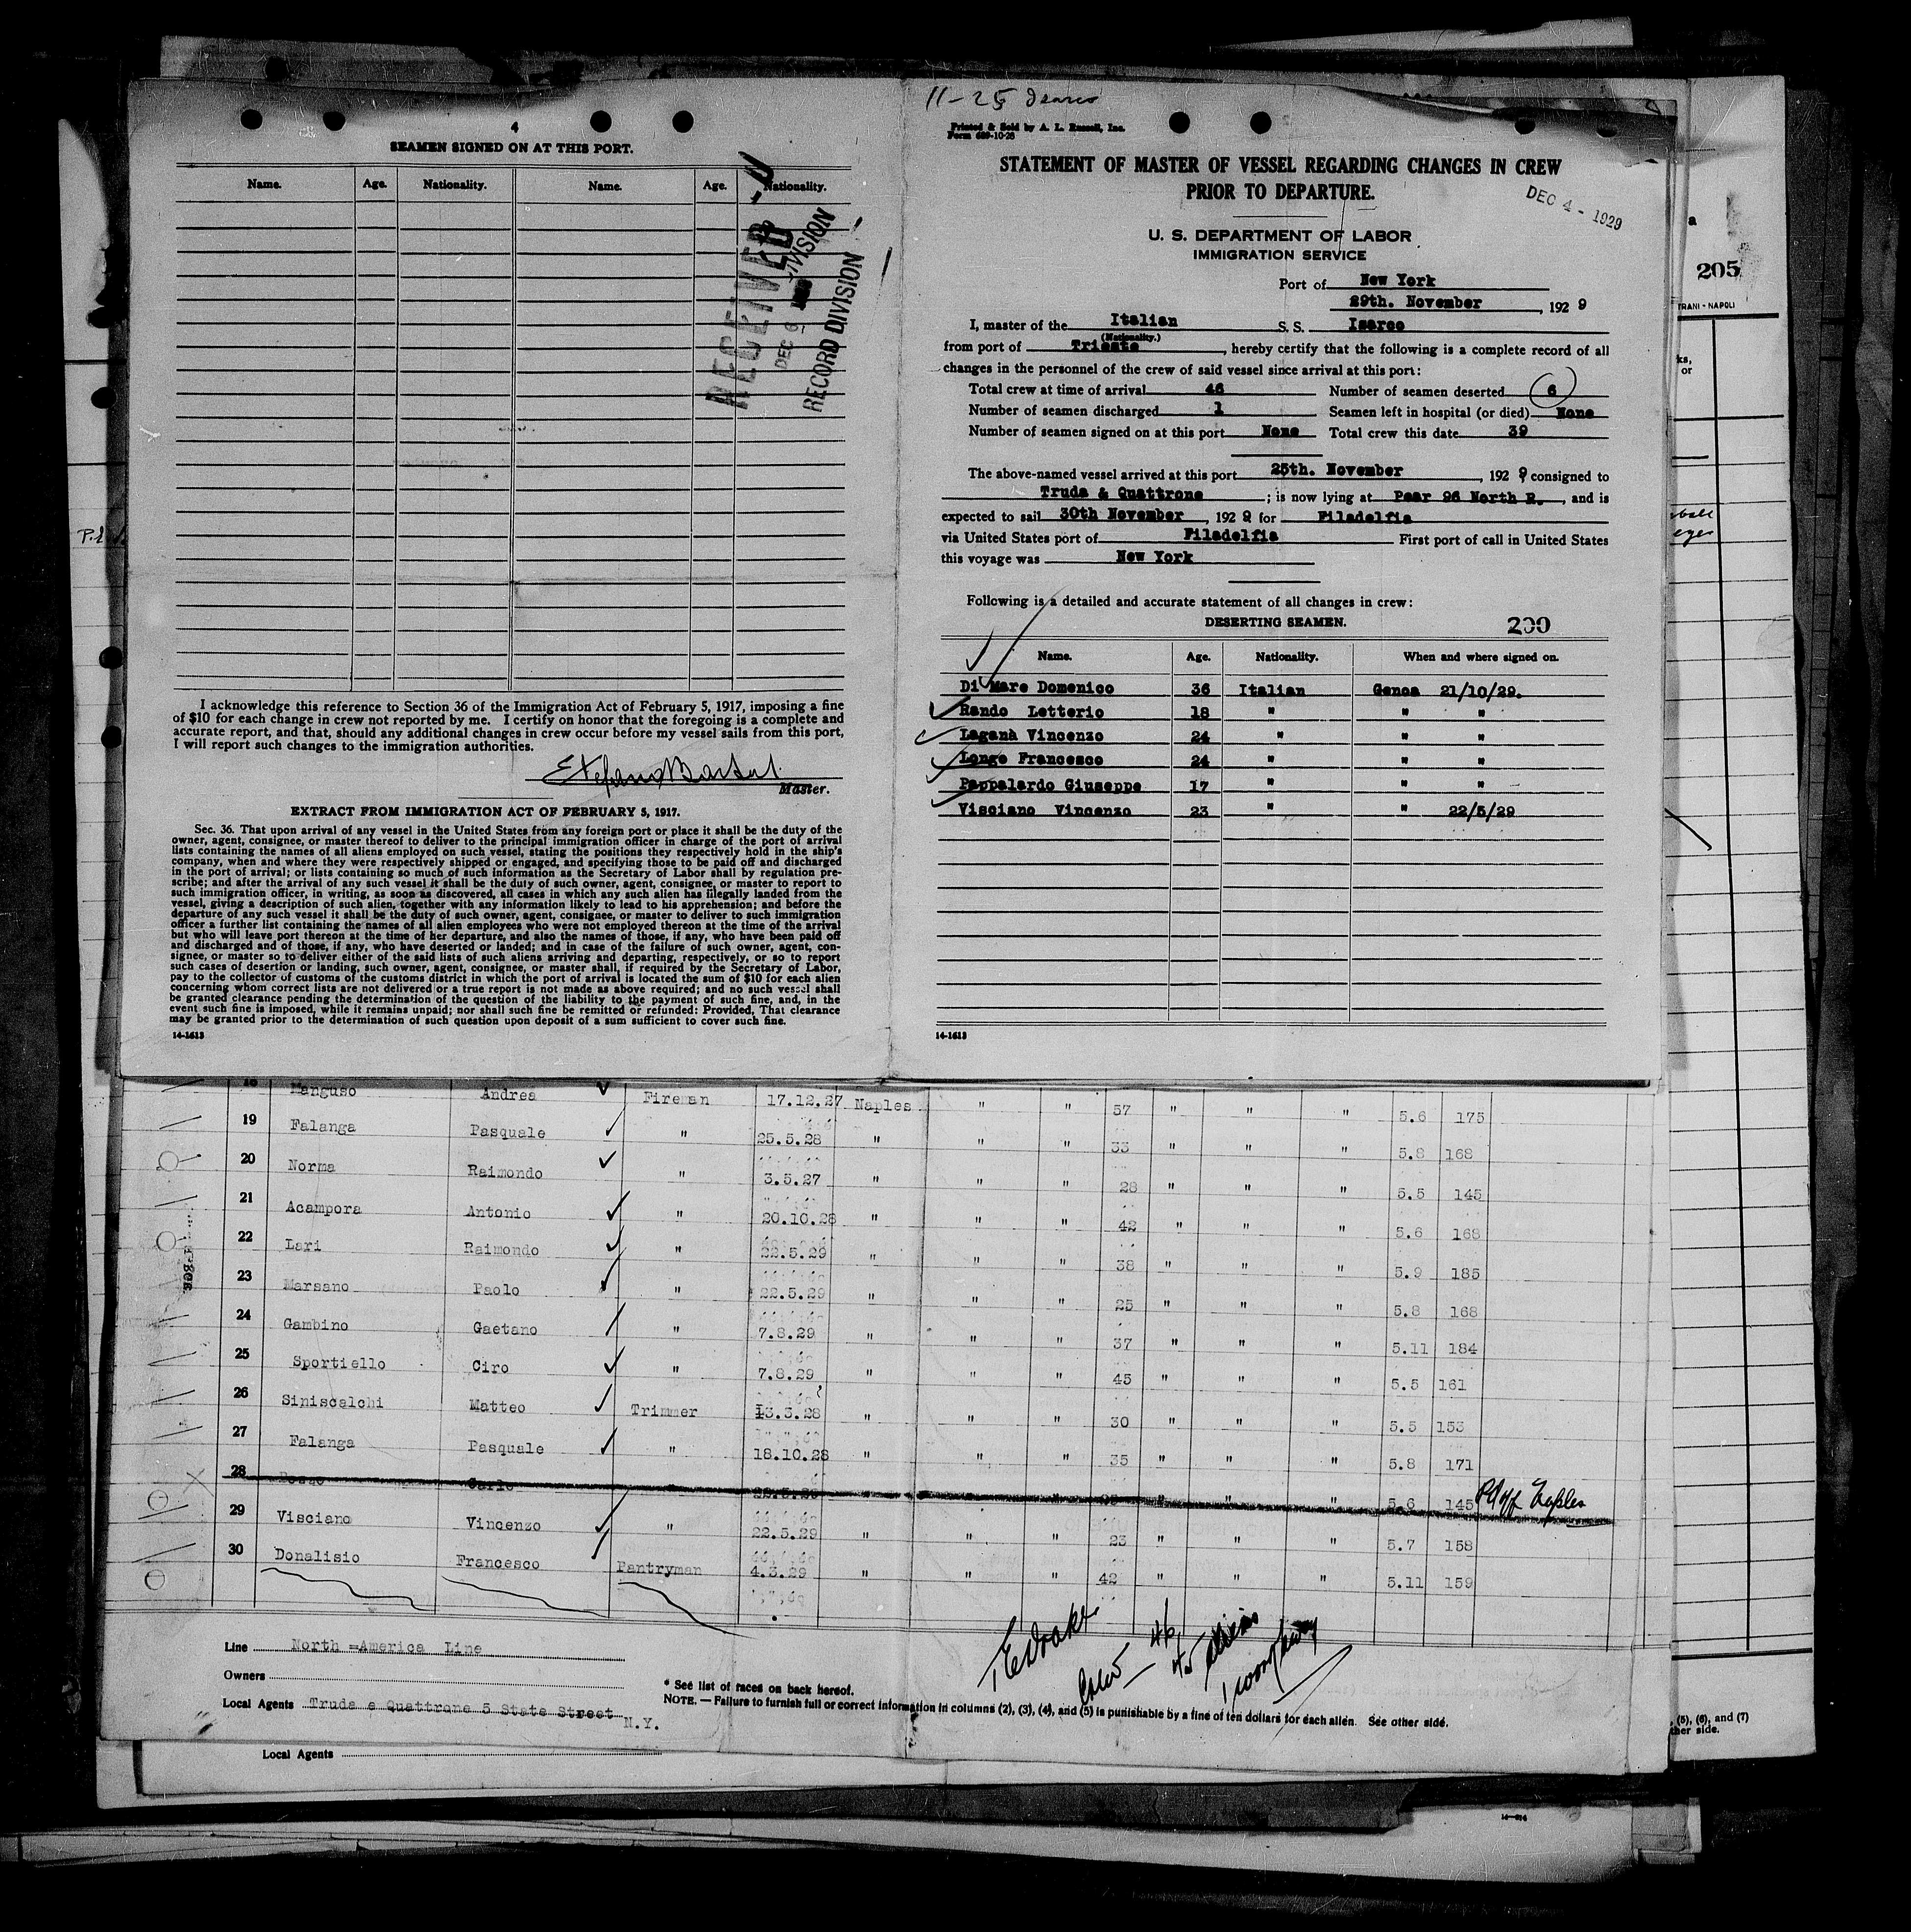 4
SEAMEN SIGNED ON AT THIS PORT.
Name. Age. Nationality. Name. Age. Nationality.
RECEIVED
DEC 6
DIVISION
RECORD DIVISION
I acknowledge this reference to Section 36 of the Immigration Act of February 5, 1917, imposing a fine
of $10 for each change in crew not reported by me. I certify on honor that the foregoing is a complete and
accurate report, and that, should any additional changes in crew occur before my vessel sails from this port,
I will report such changes to the immigration authorities.
Master.
EXTRACT FROM IMMIGRATION ACT OF FEBRUARY 5, 1917.
Sec. 36. That upon arrival of any vessel in the United States from any foreign port or place it shall be the duty of the
owner, agent, consignee, or master thereof to deliver to the principal immigration officer in charge of the port of arrival
lists containing the names of all aliens employed on such vessel, stating the positions they respectively hold in the ship's
company, when and where they were respectively shipped or engaged, and specifying those to be paid off and discharged
in the port of arrival; or lists containing so much of such information as the Secretary of Labor shall by regulation pre-
scribe; and after the arrival of any such vessel it shall be the duty of such owner, agent, consignee, or master to report to
such immigration officer, in writing, as soon as discovered, all cases in which any such alien has illegally landed from the
vessel, giving a description of such alien, together with any information likely to lead to his apprehension; and before the
departure of any such vessel it shall be the duty of such owner, agent, consignee, or master to deliver to such immigration
officer a further list containing the names of all alien employees who were not employed thereon at the time of the arrival
but who will leave port thereon at the time of her departure, and also the names of those, if any, who have been paid off
and discharged and of those, if any, who have deserted or landed; and in case of the failure of such owner, agent, con-
signee, or master so to deliver either of the said lists of such aliens arriving and departing, respectively, or so to report
such cases of desertion or landing, such owner, agent, consignee, or master shall, if required by the Secretary of Labor,
pay to the collector of customs of the customs district in which the port of arrival is located the sum of $10 for each alien
concerning whom correct lists are not delivered or a true report is not made as above required; and no such vessel shall
be granted clearance pending the determination of the question of the liability to the payment of such fine, and, in the
event such fine is imposed, while it remains unpaid; nor shall such fine be remitted or refunded: Provided, That clearance
may be granted prior to the determination of such question upon deposit of a sum sufficient to cover such fine.
14-1613
11-25
Printed & Sold by A. L. Russell, Inc.
Form 689-10-28
STATEMENT OF MASTER OF VESSEL REGARDING CHANGES IN CREW
PRIOR TO DEPARTURE.
DEC 4 - 1929
U. S. DEPARTMENT OF LABOR
IMMIGRATION SERVICE
Port of New York
29th. November, 1929
I, master of the Italian S. S. Isarco
(Nationality.)
from port of Trieste, hereby certify that the following is a complete record of all
changes in the personnel of the crew of said vessel since arrival at this port:
Total crew at time of arrival 46 Number of seamen deserted 6
Number of seamen discharged 1 Seamen left in hospital (or died) None
Number of seamen signed on at this port None Total crew this date 39
The above-named vessel arrived at this port 25th. November, 1929 consigned to
Truda & Quattrone; is now lying at Pear 96 North R., and is
expected to sail 30th November, 1929 for Filadelfia
via United States port of Filadelfia First port of call in United States
this voyage was New York
Following is a detailed and accurate statement of all changes in crew:
DESERTING SEAMEN. 200
Name. Age. Nationality. When and where signed on.
Di Mare Domenico 36 Italian Genoa 21/10/29.
Rando Letterio 18 " " "
Laganà Vincenzo 24 " " "
Longo Francesco 24 " " "
Pappalardo Giuseppe 17 " " "
Visciano Vincenzo 23 " " 22/5/29
14-1613
205
TRANI - NAPOLI
18 Manguso Andrea Fireman 17.12.27 Naples " " 57 " " " 5.6 175
19 Falanga Pasquale " 25.5.28 " " " 33 " " " 5.8 168
20 Norma Raimondo " 3.5.27 " " " 28 " " " 5.5 145
21 Acampora Antonio " 20.10.28 " " " 42 " " " 5.6 168
22 Lari Raimondo " 22.5.29 " " " 38 " " " 5.9 185
23 Marsano Paolo " 22.5.29 " " " 25 " " " 5.8 168
24 Gambino Gaetano " 7.8.29 " " " 37 " " " 5.11 184
25 Sportiello Ciro " 7.8.29 " " " 45 " " " 5.5 161
26 Siniscalchi Matteo Trimmer 13.3.28 " " " 30 " " " 5.5 153
27 Falanga Pasquale " 18.10.28 " " " 35 " " " 5.8 171
28 Carlo " " " " " " " 5.6 145 Pd off Naples
29 Visciano Vincenzo " 22.5.29 " " " 23 " " " 5.7 158
30 Donalisio Francesco Pantryman 4.3.29 " " " 42 " " " 5.11 159
Line North =America Line
Owners
Local Agents Truda e Quattrone 5 State Street N.Y.
* See list of races on back hereof.
NOTE. — Failure to furnish full or correct information in columns (2), (3), (4), and (5) is punishable by a fine of ten dollars for each alien. See other side.
Crew — 46
45 aliens
Local Agents
(5), (6), and (7)
ther side.